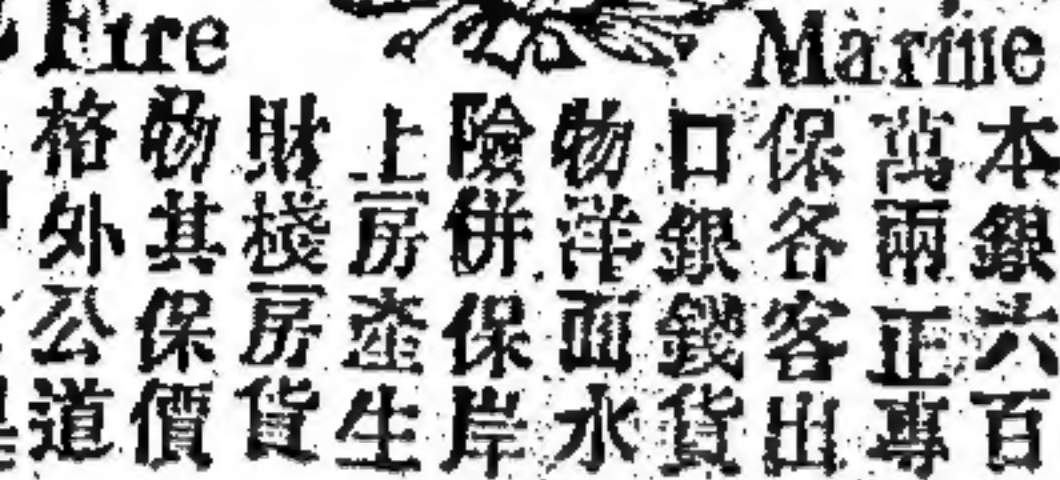 Fire
Marine
本銀六百
萬兩正專
保各客出
口銀錢貨
物洋面水
險併保岸
上房產生
財棧房貨
物其保價
格外公道